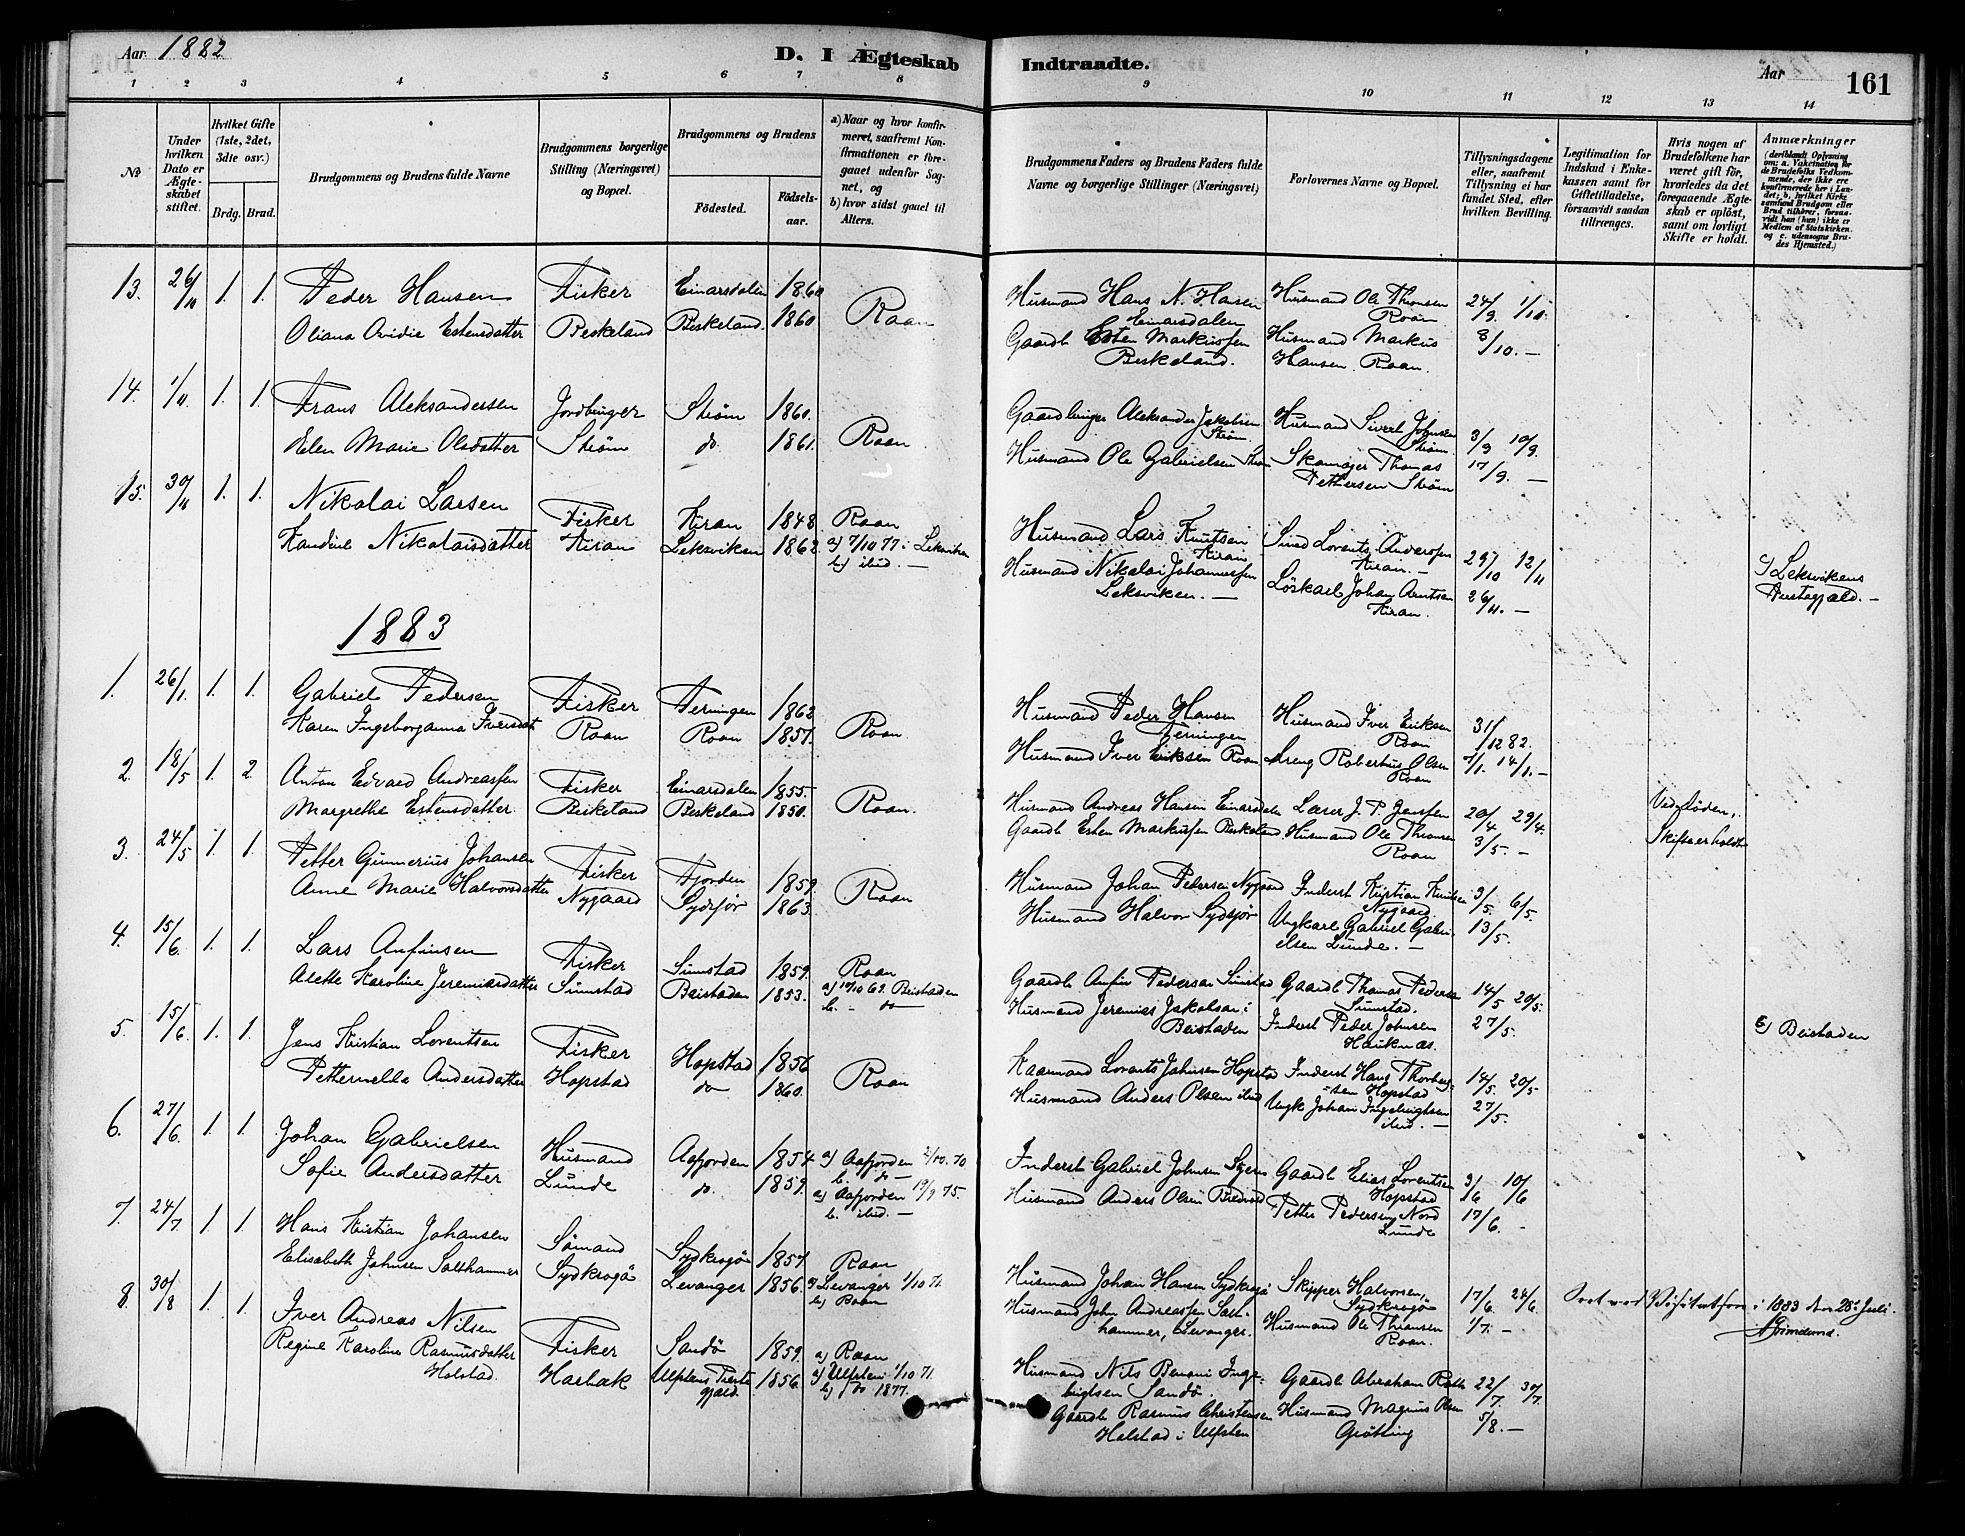 Aar 1882
D. I Ægteskab Indtraadte.
Aar
161
1 2 3 4 5 6 7 8 9 10 11 12 13 14
No
Under hvilken Dato er Ægteskabet stiftet.
Hvilket Gifte (1ste, 2det, 3die osv.)
Brdg. Brud.
Brudgommens og Brudens fulde Navne
Brudgommens borgerlige Stilling (Næringsvei) og Bopæl.
Brudgommens og Brudens
Födested.
Födsels-aar.
a) Naar og hvor konfirmeret, saafremt Konfirmationen er foregaaet udenfor Sognet, og
b) hvor sidst gaaet til Alters.
Brudgommens Faders og Brudens Faders fulde Navne og borgerlige Stillinger (Næringsvei)
Forlovernes Navne og Bopæl.
Tillysningsdagene eller, saafremt Tillysning ei har fundet Sted, efter hvilken Bevilling.
Legitimation for Indskud i Enkekassen samt for Giftetilladelse, forsaavidt saadan tiltrænges.
Hvis nogen af Brudefolkene har været gift för, hvorledes da det foregaaende Ægteskab er oplöst, samt om lovligt Skifte er holdt.
Anmærkninger
13. 26/10 1. 1. Peder Hansen Fisker Einarsdalen 1860 Raan Husmand Hans N. Hasen Einarsdalen Husmand Ole Thonsen Roan 24/9. 1/10.
Oliana Ovidie Estensdatter Beskeland Beskeland. 1860 Gaardb Esten Markussen Beskeland. Husmand Markus Hansen Roan. 8/10. —
14. 1/11. 1. 1. Frans Aleksandersen Jordbruger Strøm 1860. Roan Gaardbruger Aleksander Jakobsen Strøm Husmand Sivert Johnsen Strøm 3/9 10/9.
Elen Marie Olsdatter Strøm do 1861. Husmand Ole Gabrielsen Strøm Skomager Thomas Pettersen Strøm 17/9. —
15. 30/11 1. 1. Nikolai Larsen Fisker Kiran 1848 Roan Husmand Lars Knutsen Kiran Lorents Anderssen Kiran. — 29/10 12/11
Nikolaisdatter Kiran Leksviken 1862 a) 7/10 77 i Leksviken b) ibid. — Husmand Nikolai Johannessen Leksviken. — Løskarl Johan Arntsen Kiran. 26/11. — c) Leksvikens Præstegjæld. —
1883
1. 26/1. 1. 1. Gabriel Pedersen Fisker Terningen 1862 Roan Husmand Peder Hansen Terningen Husmand Iver Eriksen Roan 31/12 82.
Karen Ingeborganna Iversdat Roan Roan 1857. Husmand Iver Eriksen Roan Dreng Robertus Olsen Roan 7/1. 14/1. —
2. 18/5 1. 2. Anton Edvard Andreassen Fisker Einarsdalen 1855. Roan. Husmand Andreas Hansen Einarsdalen Lærer J. P. Jenssen 20/4 29/4. Ved døden,
Margrethe Estensdatter Beskeland Beskeland 1850. Gaardb Esten Markussen Beskeland Husmand Ole Thonsen Roan 3/5. — Skifte er holdt
3. 24/5 1. 1. Petter Gunnerius Johansen Fisker Fjorden 1859. Roan Husmand Johan Pedersen Nygaard Inderst Kristian Knutsen Nygaard 3/5. 6/5.
Anne Marie Halvorsdatter Nygaard Sydsjør 1863. Husmand Halvor Sydsjør Ungkarl Gabriel Gabrielsen Lunde. — 13/5.
4. 15/6. 1. 1. Lars Anfinsen Fisker Sumstad 1859. Roan Gaardb Anfin Pedersen Sumstad Gaardb Thomas Pedersen Sumstad. 14/5 20/5.
Alette Karoline Jeremiasdatter Sumstad Beistaden 1853. a) 10/10 69. Beistaden b. - do Husmand Jeremias Jakobsen i Beistaden Inderst Peder Johnsen Hauknæs. 27/5. c) Beistaden
5. 15/6. 1. 1. Jens Kristian Lorentsen Fisker Hopstad 1856 Roan Kaarmand Lorents Johnsen Hopstad Inderst Hans Thorbergsen Hopstad 14/5. 20/5
Petternella Andersdatter Hopstad do 1860. Husmand Anders Olsen ibid Ungk Johan Ingebrigtsen ibid. — 27/5.
6. 27/6. 1. 1. Johan Gabrielsen Husmand Aafjorden 1854 a) Aafjorden 2/10. 70 b. do — Inderst Gabriel Johnsen Gaardb Elias Lorentsen Hopstad 3/6 10/6
Sofie Andersdatter Lunde do. 1859. a) Aafjorden 19/9 75. b. ibid. — Husmand Anders Olsen Petter Pedersen Nord Lunde 17/6. -
7. 24/7 1. 1. Hans Kristian Johansen Sømand Sydkrogø 1857 Roan Husmand Johan Hansen Sydkrogø Skipper Halvorsen, Sydkrogø 17/6. 24/6. Seet ved Visitatsen i 1883 den 28de Juli.
Elisabeth Johnsen Salthammer Sydkrogø Levanger 1856. a) Levanger 1/10 71. b) Roan Husmand John Andreassen Salthammer, Levanger. Husmand Ole Thonsen Roan. 1/7. — Grimelund.
8. 30/8 1. 1. Iver Andreas Nilsen Fisker Sandø 1859. a) Roan Husmand Nils Benoni Ingebrigtsen Sandø. Gaardb Abraham 22/7. 30/7.
Regine Karoline Rasmusdatter Holstad. Harbak Ulfstens Præstegjæld. 1856. a) Ulfsten 1/10 71. b) do 1877. Gaardb Rasmus Christensen Holstad i Ulfsten Husmand Magnus Olsen Grøtting 5/8. —